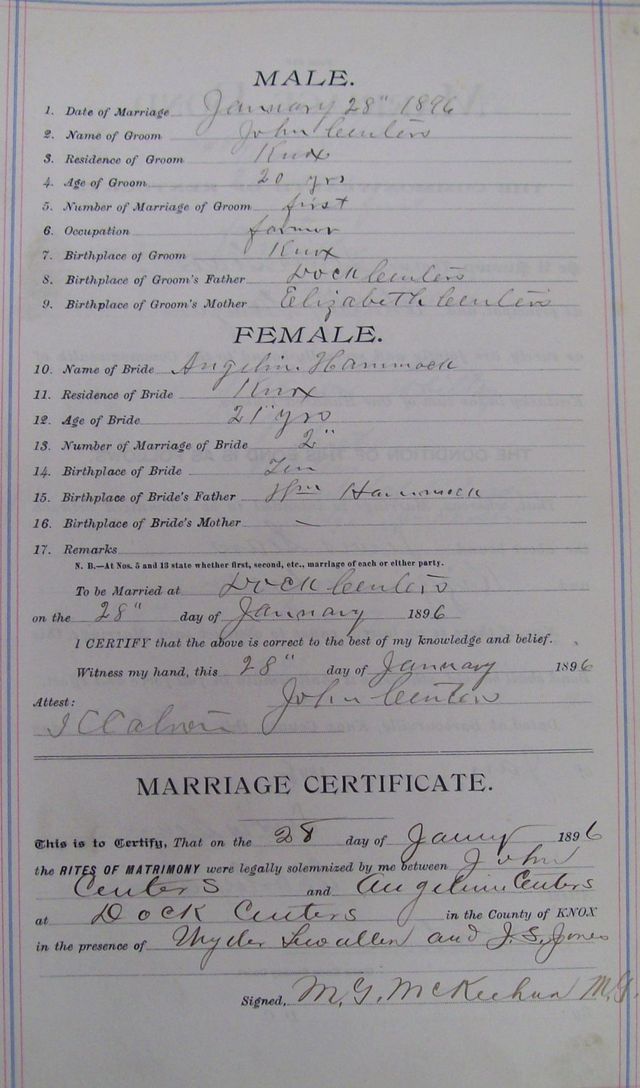 MALE.
1. Date of Marriage January 28" 1896
2. Name of Groom John Centers
3. Residence of Groom Knox
4. Age of Groom 20 yrs
5. Number of Marriage of Groom first
6. Occupation farmer
7. Birthplace of Groom Knox
8. Birthplace of Groom's Father Dock Centers
9. Birthplace of Groom's Mother Elizabeth Centers
FEMALE.
10. Name of Bride Angeline Hammock
11. Residence of Bride Knox
12. Age of Bride 21" yrs
13. Number of Marriage of Bride 2"
14. Birthplace of Bride Ten
15. Birthplace of Bride's Father Wm Hammock
16. Birthplace of Bride's Mother —
17. Remarks
N. B.—At Nos. 5 and 13 state whether first, second, etc., marriage of each or either party.
To be Married at Dock Centers
on the 28" day of January 1896
I CERTIFY that the above is correct to the best of my knowledge and belief.
Witness my hand, this 28" day of January 1896
Attest: John Centers
MARRIAGE CERTIFICATE.
This is to Certify, That on the 28 day of Jany 1896
the RITES OF MATRIMONY were legally solemnized by me between John
Centers and Angeline Centers
at Dock Centers in the County of KNOX
in the presence of Lewallen and J. S. Jones
Signed, M. G. McKeehan M. G.